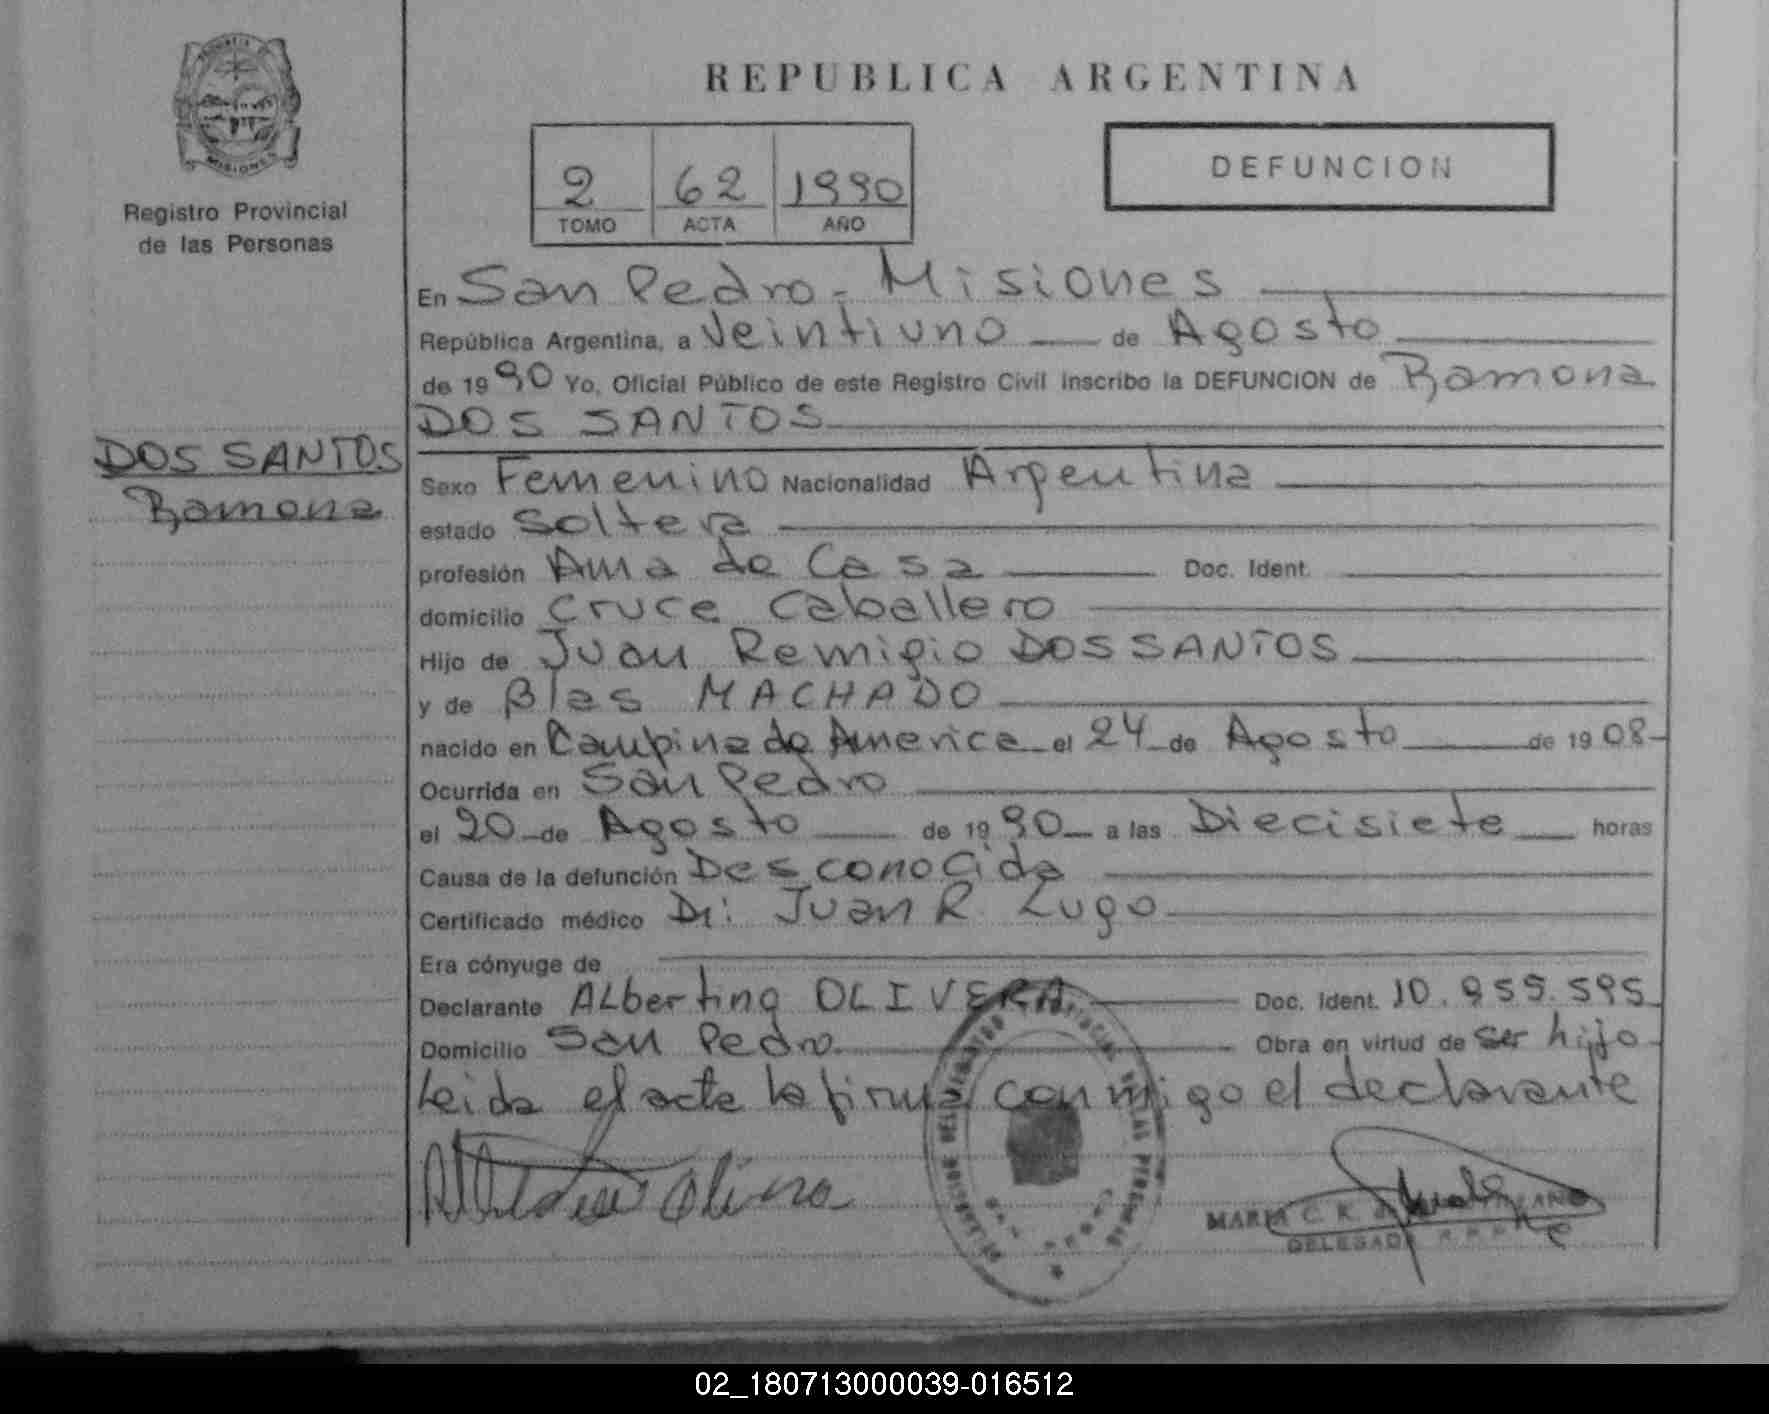 MISIONES
Registro Provincial
de las Personas
REPUBLICA ARGENTINA
2 62 1990
TOMO ACTA AÑO
DEFUNCION
En San Pedro - Misiones
República Argentina, a Veintiuno de Agosto
de 1990 Yo, Oficial Público de este Registro Civil inscribo la DEFUNCION de Ramona
DOS SANTOS
DOS SANTOS
Ramona
Sexo Femenino Nacionalidad Argentina
estado Soltera
profesión Ama de Casa Doc. Ident.
domicilio Cruce Caballero
Hijo de Juan Remigio DOS SANTOS
y de Blas MACHADO
nacido en Campina de America el 24 de Agosto de 1908
Ocurrida en San Pedro
el 20 de Agosto de 1990 a las Diecisiete horas
Causa de la defunción Desconocida
Certificado médico Dr: Juan R. Lugo
Era cónyuge de
Declarante Albertino OLIVERA Doc. Ident. 10.955.595
Domicilio San Pedro Obra en virtud de ser hijo
Leida el acta la firma conmigo el declarante
MARIA C. K.
DELEGADA
02_180713000039-016512